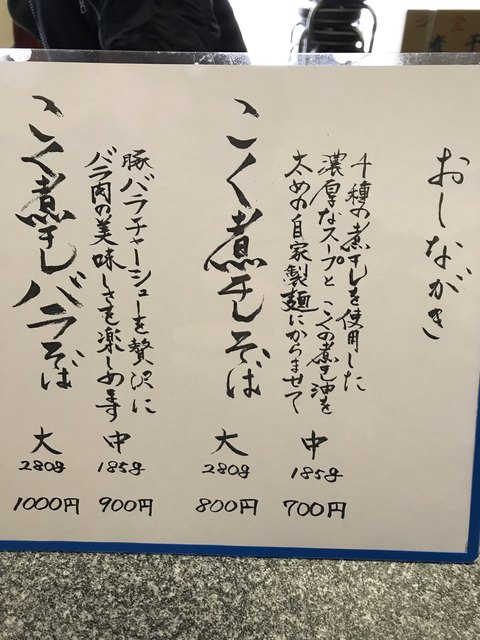 おしながき
十種の煮干しを使用した
濃厚なスープとこくの煮干油を
太めの自家製麺にからませて
こく煮干しそば
中
185g
700円
大
280g
800円
豚バラチャーシューを贅沢に
バラ肉の美味しさを楽しめます
こく煮干しバラそば
中
185g
900円
大
280g
1000円